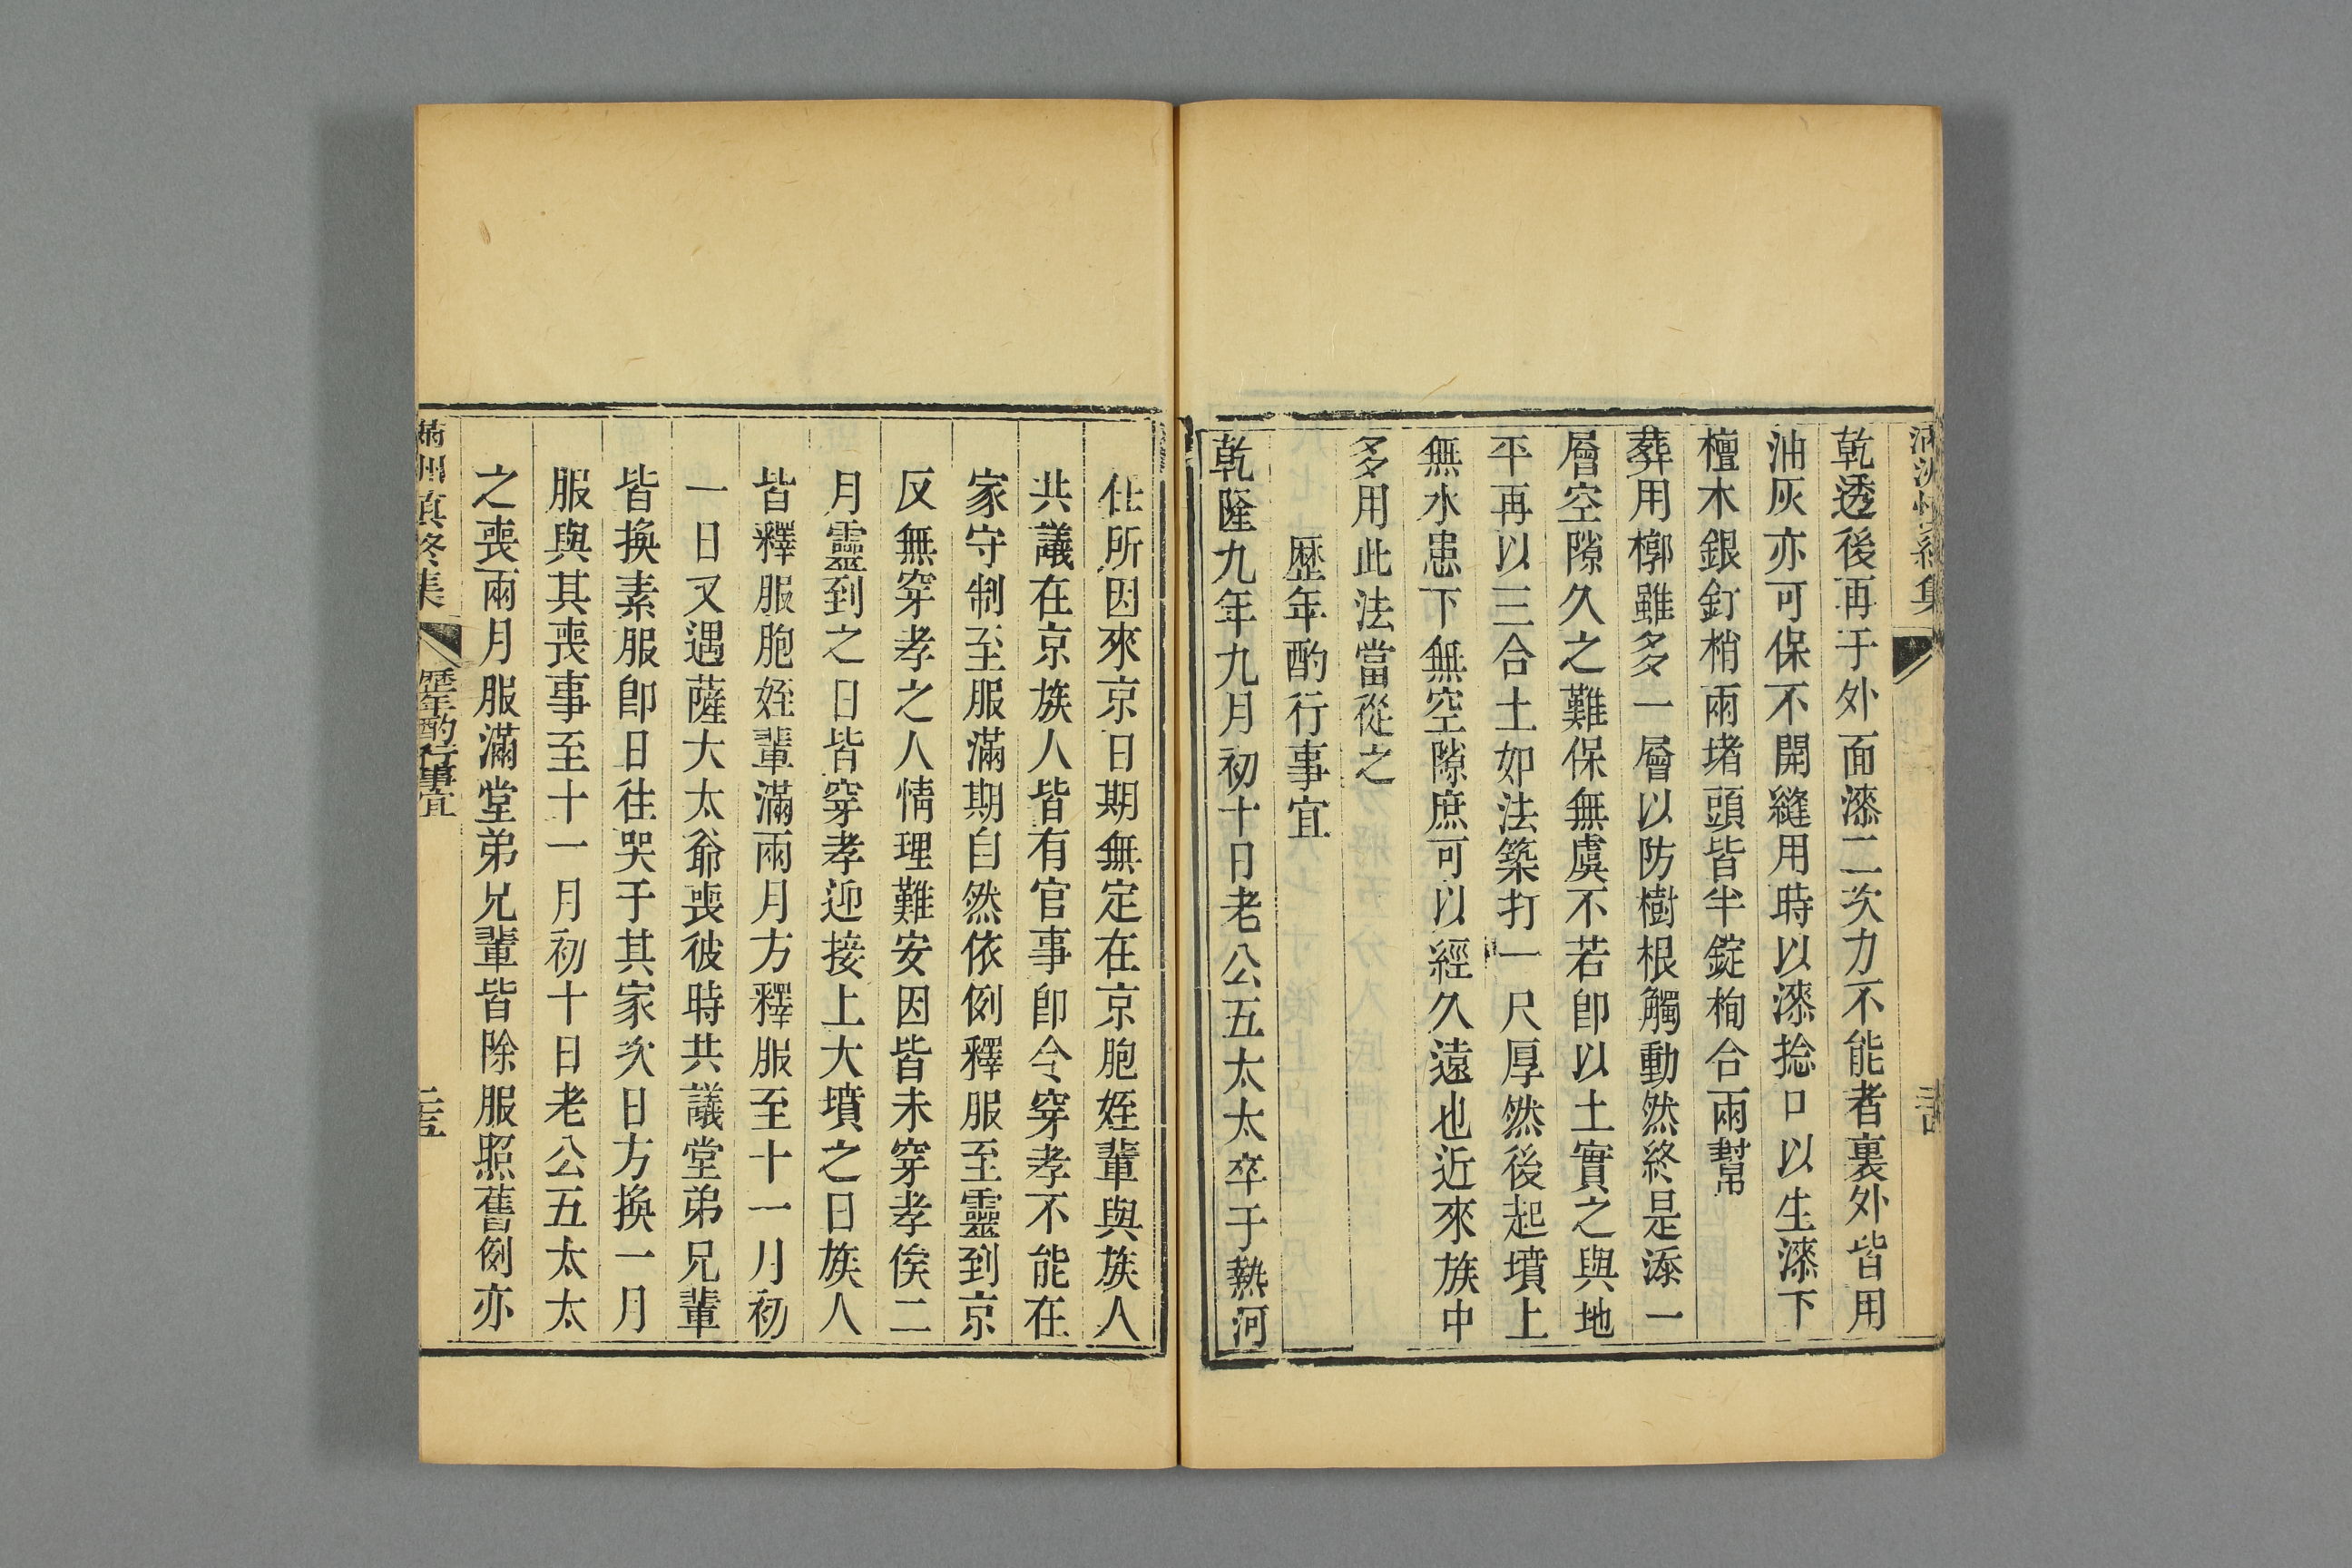 乾透後再于外面漆二次力不能者裏外皆用
油灰亦可保不開縫用時以漆捻口以生漆下
檀木銀釘梢兩堵頭皆半錠栒合兩幫
葬用槨雖多一層以防樹根觸動然終是添一
層空隙久之難保無虞不若卽以土實之與地
平再以三合土如法築打一尺厚然後起墳上
無水患下無空隙庶可以經久遠也近來族中
多用此法當從之
歷年酌行事宜
乾隆九年九月初十日老公五太太卒于熱河
任所因來京日期無定在京胞姪輩與族人
共議在京族人皆有官事卽令穿孝不能在
家守制至服滿期自然依例釋服至靈到京
反無穿孝之人情理難安因皆未穿孝俟二
月靈到之日皆穿孝迎接上大墳之日族人
皆釋服胞姪輩滿兩月方釋服至十一月初
一日又遇薩大太爺喪彼時共議堂弟兄輩
皆換素服卽日往哭于其家次日方換一月
服與其喪事至十一月初十日老公五太太
之喪兩月服滿堂弟兄輩皆除服照舊例亦
滿州慎終集
歷年酌行事宜